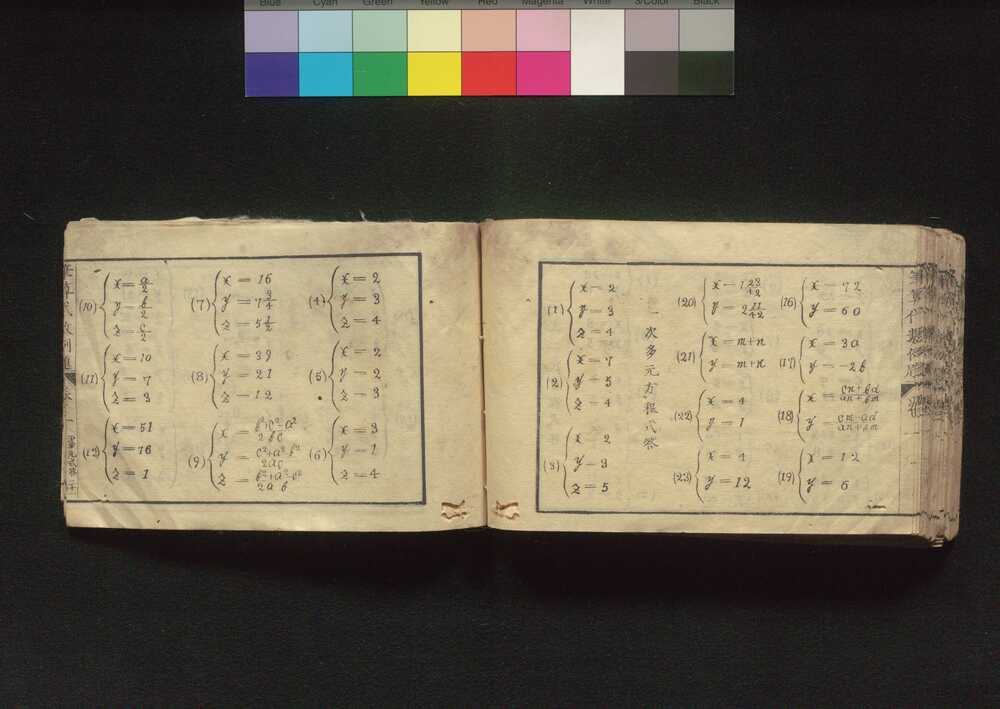 Blue Cyan Green Yellow Red Magenta White 3/Color Black
(16) x = 72
y = 60
(17) x = 3a
y = -2b
(18) x = cn+bd/an+bm
y = cm-ad/an+bm
(19) x = 12
y = 6
(20) x = 1 23/42
y = 2 11/42
(21) x = m+n
y = m+n
(22) x = 4
y = 1
(23) x = 4
y = 12
一次多元方程式答
(1) x = 2
y = 3
z = 4
(2) x = 7
y = 5
z = 4
(3) x = 2
y = 3
z = 5
(4) x = 2
y = 3
z = 4
(5) x = 2
y = 2
z = 3
(6) x = 3
y = 1
z = 4
(7) x = 16
y = 7 3/4
z = 5 1/2
(8) x = 39
y = 21
z = 12
(9) x = b²+c²-a²/2bc
y = c²+a²-b²/2ac
z = b²+a²-c²/2ab
(10) x = a/2
y = b/2
z = c/2
(11) x = 10
y = 7
z = 3
(12) x = 51
y = 76
z = 1